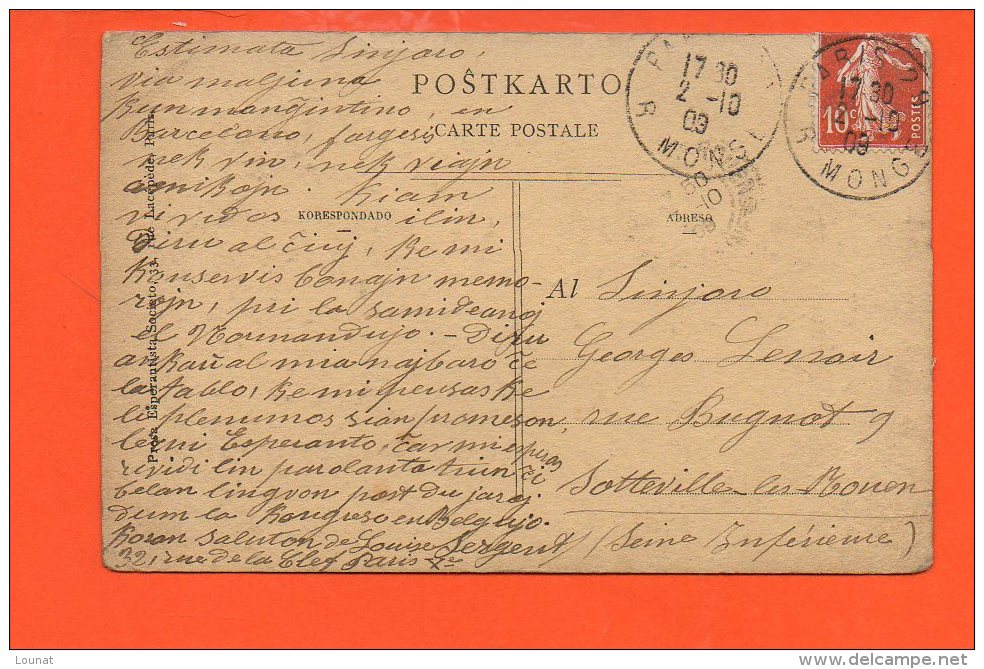 Estimata Sinjoro,
via maljuna
kunmanĝintino, en
Barcelono, forgesis
nek vin, nek viajn
amikojn. Kiam
vi vidos ilin,
Diru al ĉiuj, ke mi
konservis bonajn memo-
rojn, pri la samideanoj
el Normandujo. - Diru
ankaŭ al mia najbaro ĉe
la tablo, ke mi pensas ke
li plenumos sian promeson,
lerni Esperanto, ĉar mi esperas
revidi lin parolanta tiun ĉi
belan lingvon post du jaroj
dum la Kongreso en Belgujo.
Koran saluton de Louise Sergent
32, rue de la Clef Paris Ve
POŜTKARTO
CARTE POSTALE
KORESPONDADO
ADRESO
Al Sinjoro
Georges Lenoir
rue Bugnot 9
Sotteville les Rouen
(Seine Inférieure)
Presa Esperantista Societo, 33, rue Lacépède, Paris
17 30
2 -10
09
R. MONGE
PARIS
17 30
2 -10
09
R. MONGE
10c
POSTES
Lounat
www.delcampe.net